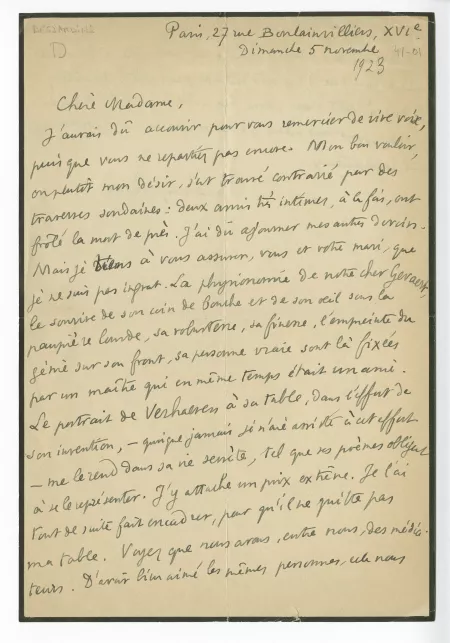 DESJARDINS
D
41-01
Paris, 27 rue Boulainvilliers, XVIe
Dimanche 5 novembre
1923
Chère Madame,
J'aurais dû accourir pour vous remercier de vive voix,
puisque vous ne repartez pas encore. Mon bon vouloir,
ou plutôt mon désir, s'est trouvé contrarié par des
traverses soudaines : deux amis très intimes, à la fois, ont
frôlé la mort de près. J'ai dû ajourner mes autres devoirs.
Mais je tiens à vous assurer, vous et votre mari, que
je ne suis pas ingrat. La physionomie de notre cher Gevaert,
le sourire de son coin de bouche et de son oeil sous la
paupière lourde, sa robustesse, sa finesse, l'empreinte du
génie sur son front, sa personne vraie sont là fixées
par un maître qui en même temps était un ami.
Le portrait de Verhaeren à sa table, dans l'effort de
son invention, – quoique jamais je n'aie assisté à cet effort
– me le rend dans sa vie secrète, tel que ses poèmes obligent
à se le représenter. J'y attache un prix extrême. Je l'ai
tout de suite fait encadrer, pour qu'il ne quitte pas
ma table. Voyez que nous avons, entre nous, des média-
teurs. D'avoir bien aimé les mêmes personnes, cela nous